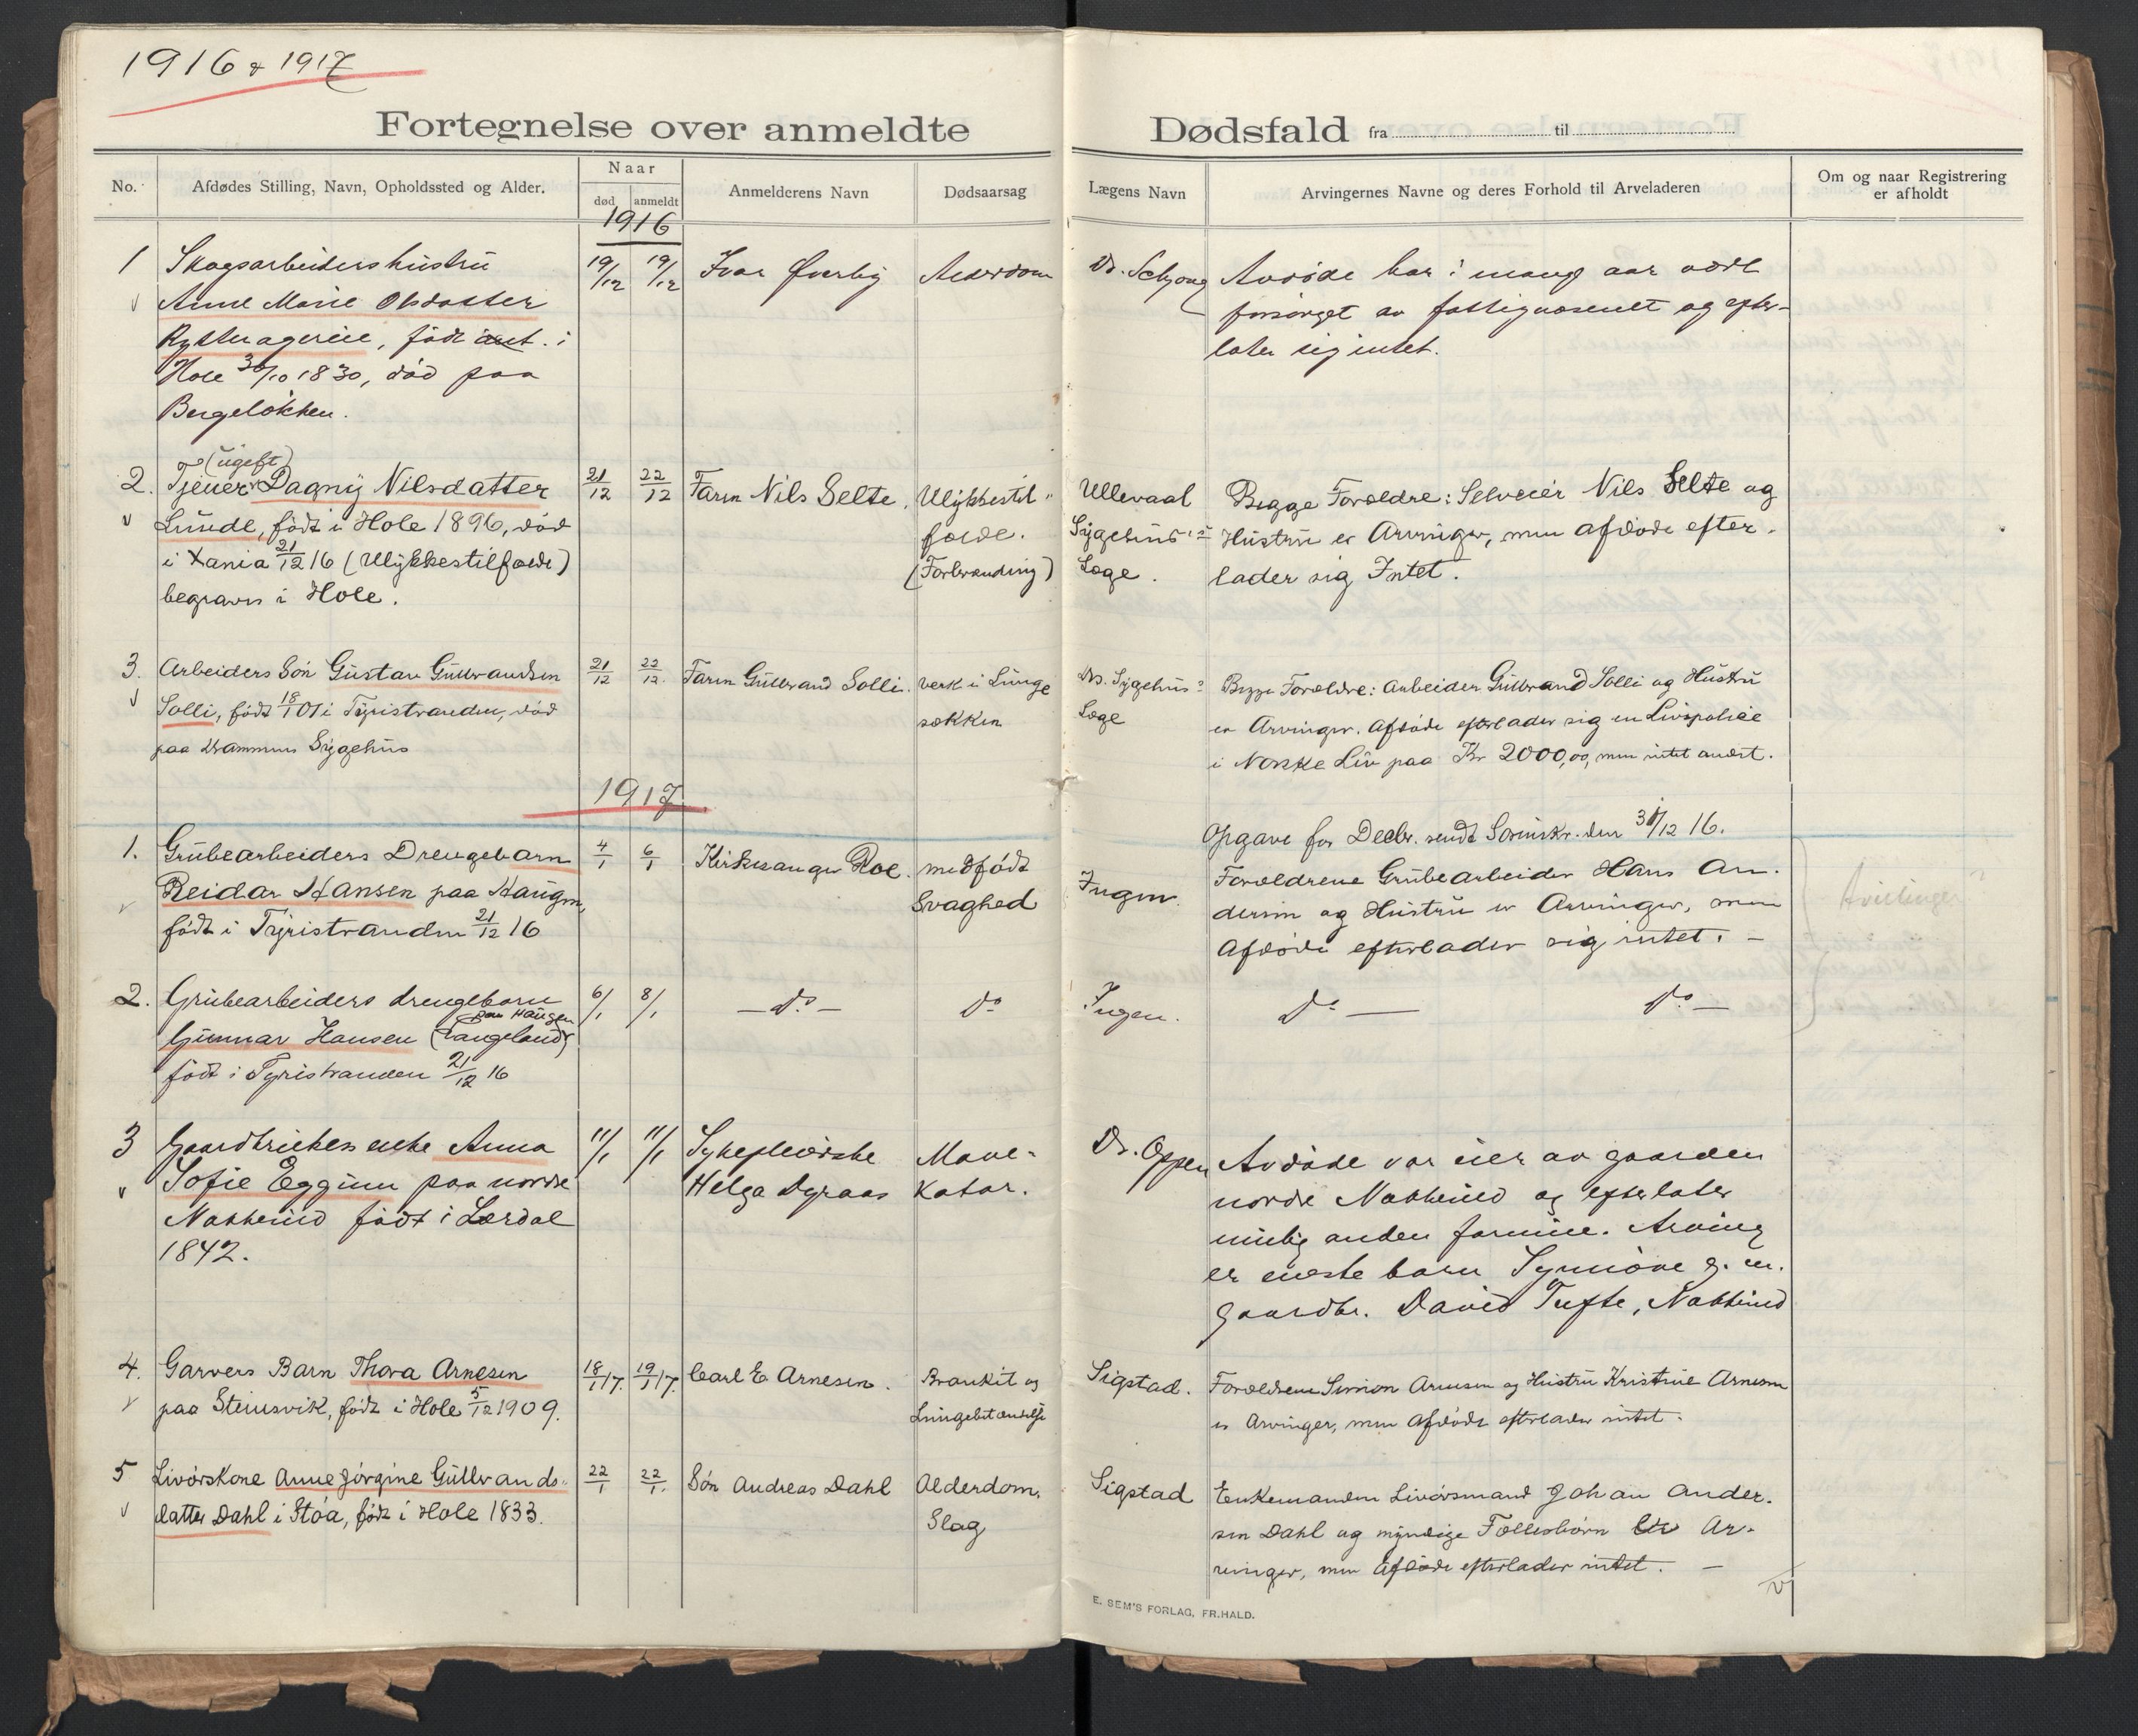 1916 & 1917
Fortegnelse over anmeldte Dødsfald fra til
No.
Afdødes Stilling, Navn, Opholdssted og Alder.
Naar
død anmeldt
Anmelderens Navn
Dødsaarsag
Lægens Navn
Arvingernes Navne og deres Forhold til Arveladeren
Om og naar Registrering
er afholdt
1916
1
Skogsarbeiders hustru
Anne Marie Olsdatter
født i
Hole 30/10 1830, død paa
Bergeløkken.
19/12 19/12
Ivar Øverby
Alderdom
Dr. Schjong
Avdøde har i mange aar vært
forsørget av fattigvæsenet og efter-
later sig intet.
2.
(ugift)
Tjener Dagny Nilsdatter
Lunde, født i Hole 1896, død
i Xania 21/12 16 (Ulykkestilfælde)
begraves i Hole.
21/12 22/12
Faren Nils Selte.
Ulykkestil-
fælde.
(Forbrænding)
Ullevaal
Sygehus's
Læge.
Begge Forældre: Selveier Nils Selte og
Hustru er Arvinger, men afdøde efter-
lader sig Intet.
3.
Arbeiders Søn Gustav Gulbrandsen
Solli, født 18/1 01 i Tyristranden, død
paa Drammens Sygehus
21/12 22/12.
Faren Gulbrand Solli.
verk i Lunge
sækken
Dr. Sygehus
Læge
Begge Forældre: Arbeider Gulbrand Solli og Hustru
er Arvinger. Afdøde efterlader sig en Livspolice
i Norske Liv paa Kr 2000,00, men intet andet.
1917.
Opgave for Decbr. sendt Sorenskr. den 31/12 16.
1.
Grubearbeiders Drengebarn
Reidar Hansen paa Haugen,
født i Tyristranden 21/12 16
4/1 6/1
Kirkesanger Roe.
medfødt
Svaghed
Ingen.
Forældrene Grubearbeider Hans An-
dersen og Hustru er Arvinger, men
Afdøde efterlader sig intet. -
Tvillinger
2.
Grubearbeiders drengebarn
paa Haugen
Gunnar Hansen (Langeland)
født i Tyristranden 21/12 16
6/1 8/1
- Do -
Do
Ingen.
Do - Do -
3
Gaardbrukers enke Anna
Sofie Eggum paa nordre
Nakkerud født i Lærdal
1842.
11/1 11/1
Sykepleierske
Helga Dyraas
Mave-
Katar.
Dr. Oppen
Avdøde var eier av gaarden
nordre Nakkerud og efterlater
muligens anden formue. Arving
er eneste barn Synnøve g. m.
gaardbr. David Tufte, Nakkerud
4.
Garvers Barn Thora Arnesen
paa Steinsvik, født i Hole 5/12 1909.
18/1 17. 19/1 17.
Carl E Arnesen.
Bronkit og
Lungebetændelse
Sigstad.
Forældrene Simon Arnesen og Hustru Kristine Arnesen
er Arvinger, men Afdøde efterlader intet.
5
Livørskone Anne Jørgine Gullbrands-
datter Dahl i Støa, født i Hole 1833.
22/1 22/1.
Søn Andreas Dahl
Alderdom.
Slag
Sigstad
Enkemanden Livørsmand Johan Ander-
sen Dahl og myndige Fællesbørn er Ar-
vinger, men Afdøde efterlader intet. -
E. SEM'S FORLAG, FR.HALD.